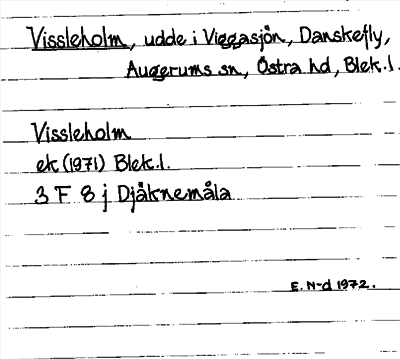 Vissleholm, udde i Viggasjön, Danskefly,
Augerums sn, Östra hd, Blek.l.
Vissleholm
ek (1971) Blek.l.
3 F 8 j Djäknemåla
E. N-d 1972.